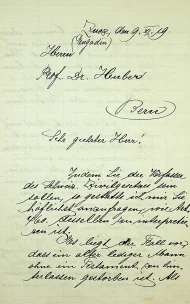 Zuoz, den 9. XI. 19.
(Engadin)
Herrn
Prof. Dr. Huber
Bern
Sehr geehrter Herr!
Indem Sie der Verfasser
des Schweiz. Zivilgesetzes sein
sollen, so gestatte ich mir Sie
höflichst anzufragen, wie Art.
derselben zu interpretie-
ren ist.
Es liegt der Fall vor,
dass ein alter lediger Mann
ohne ein Testament zu hin-
terlassen gestorben ist. Als